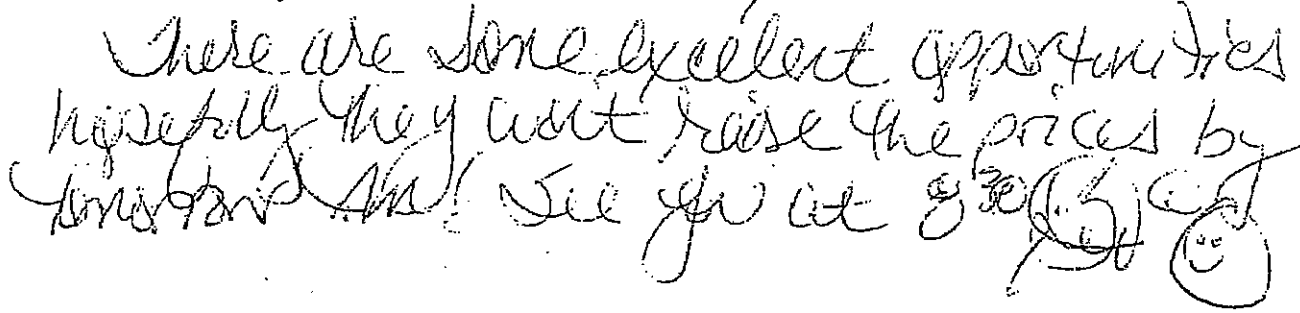 There are some excellent opportunities
hopefully they wont raise the prices by
tomorrow AM! See you at 8³⁰